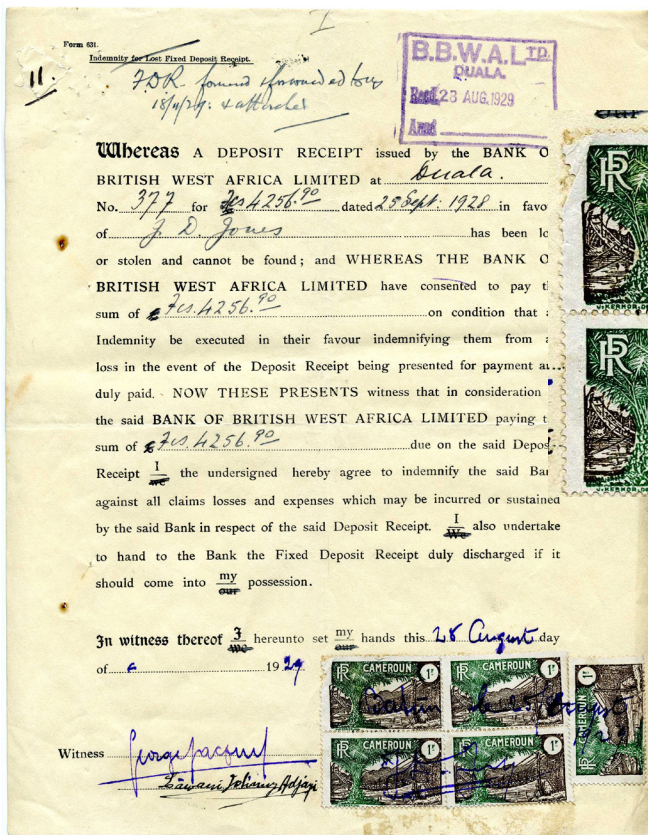 I
Form 631.
Indemnity for Lost Fixed Deposit Receipt.
11.
F.D.R. found & forwarded to us
18/11/29. & attached
B.B.W.A. LTD.
DUALA.
Recd. 28 AUG. 1929
Ansd
Our
Whereas A DEPOSIT RECEIPT issued by the BANK O
BRITISH WEST AFRICA LIMITED at Duala.
No. 377 for £ Fcs 4256.90 dated 25 Sept. 1928 in favo
of J. D. Jones has been lo
or stolen and cannot be found; and WHEREAS THE BANK O
BRITISH WEST AFRICA LIMITED have consented to pay t
sum of £ Fcs. 4256.90 on condition that a
Indemnity be executed in their favour indemnifying them from a
loss in the event of the Deposit Receipt being presented for payment a
duly paid. NOW THESE PRESENTS witness that in consideration
the said BANK OF BRITISH WEST AFRICA LIMITED paying t
sum of £ Fcs. 4256.90 due on the said Depos
Receipt I we the undersigned hereby agree to indemnify the said Ban
against all claims losses and expenses which may be incurred or sustained
by the said Bank in respect of the said Deposit Receipt. I We also undertake
to hand to the Bank the Fixed Deposit Receipt duly discharged if it
should come into my our possession.
In witness thereof I we hereunto set my our hands this 28 August day
of 19 29
Witness
RF 5
RF 5
RF CAMEROUN 1F
RF CAMEROUN 1F
RF CAMEROUN 1F
RF CAMEROUN 1F
1F
August